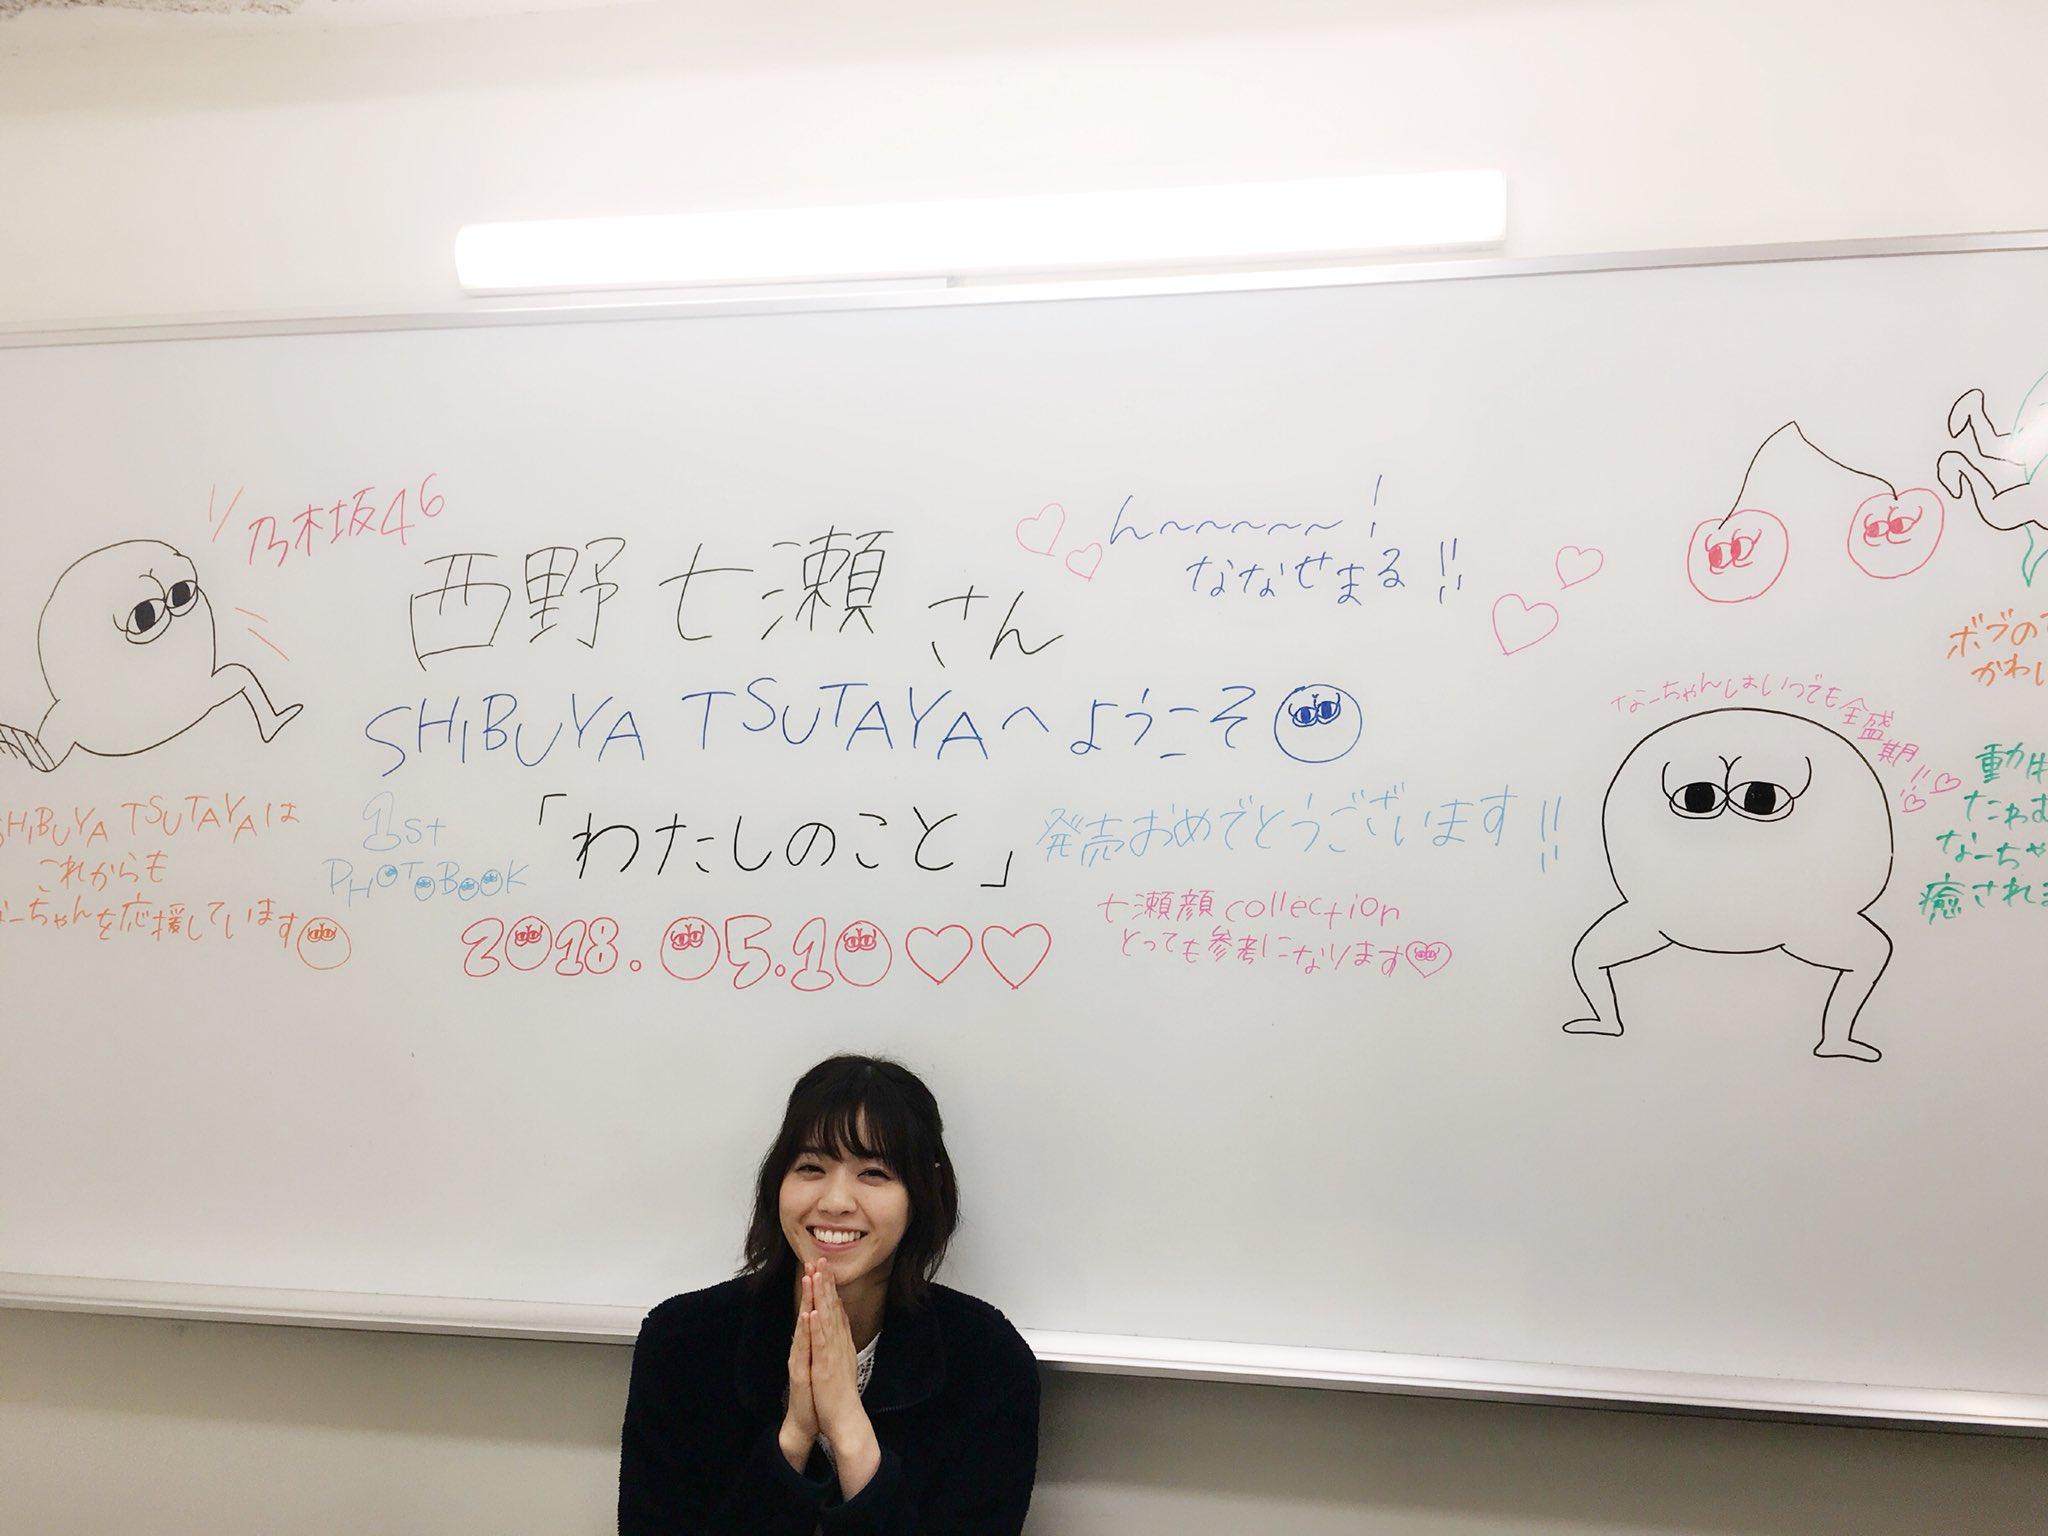 乃木坂46
西野七瀬さん
ん〜〜〜〜〜〜!
ななせまる!!
SHIBUYA TSUTAYAへようこそ
1st
PHOTOBOOK
「わたしのこと」
発売おめでとうございます!!
2018.05.10♡♡
七瀬顔collection
とっても参考になります
SHIBUYA TSUTAYAは
これからも
なーちゃんを応援しています
なーちゃんはいつでも全盛期!!♡♡
ボブの
かわい
動
たわむ
なーちゃ
癒されま